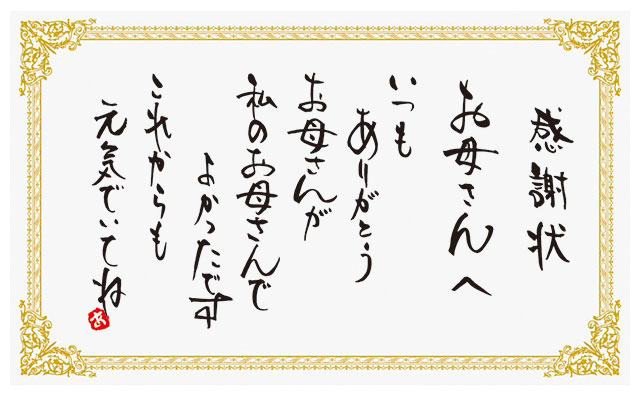 感謝状
お母さんへ
いつも
ありがとう
お母さんが
私のお母さんで
よかったです
これからも
元気でいてね